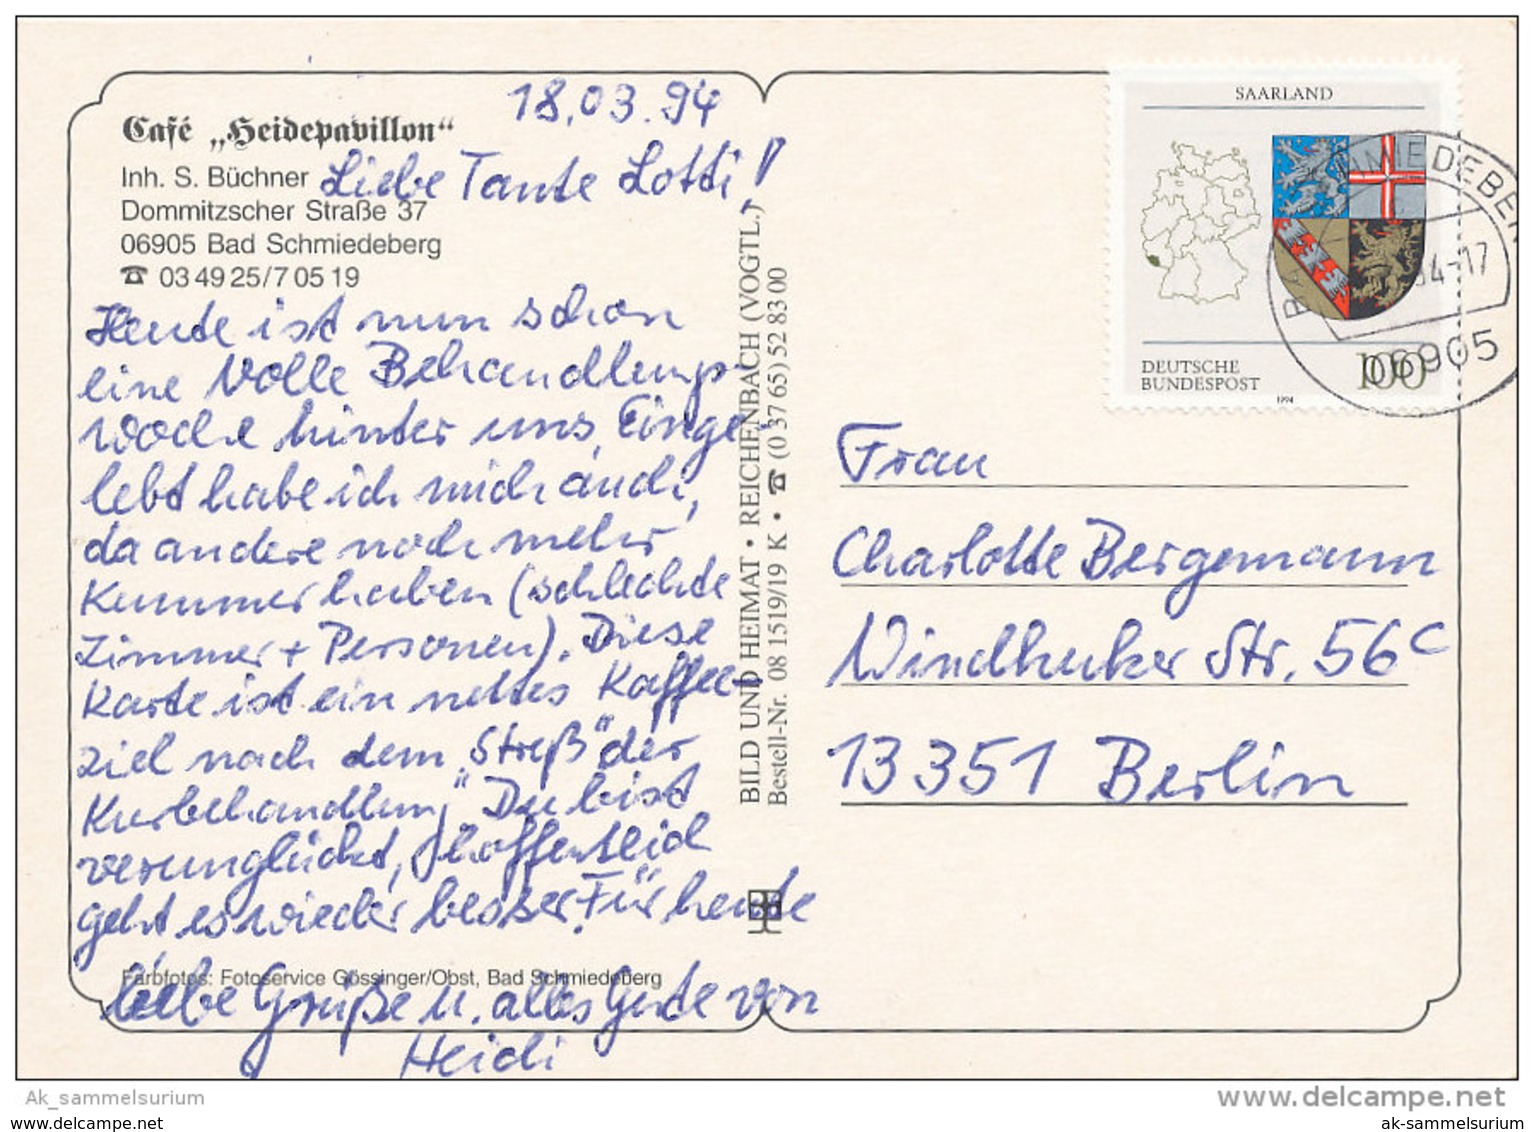 18.03.94
Café „Heidepavillon“
Inh. S. Büchner
Liebe Tante Lotti!
Dommitzscher Straße 37
06905 Bad Schmiedeberg
☎ 03 49 25/7 05 19
Heute ist nun schon
eine volle Behandlungs-
woche hinter uns. Einge-
lebt habe ich mich auch,
da andere noch mehr
Kummer haben (schlechte
Zimmer + Personen). Diese
Karte ist ein nettes Kaffee-
ziel nach dem „Streß“ der
„Kurbehandlung“. Du bist
verunglückt, hoffentlich
geht es wieder besser. Für heute
Farbfotos: Fotoservice Gössinger/Obst, Bad Schmiedeberg
liebe Grüße u. alles Gute von
Heidi
BILD UND HEIMAT • REICHENBACH (VOGTL.)
Bestell-Nr. 08 1519/19 K • ☎ (0 37 65) 52 83 00
SAARLAND
DEUTSCHE
BUNDESPOST
100
1994
MIEDEBER
94-17
06905
Frau
Charlotte Bergemann
Windhuker Str. 56c
13351 Berlin
Ak_sammelsurium
www.delcampe.net
www.delcampe.net
ak-sammelsurium